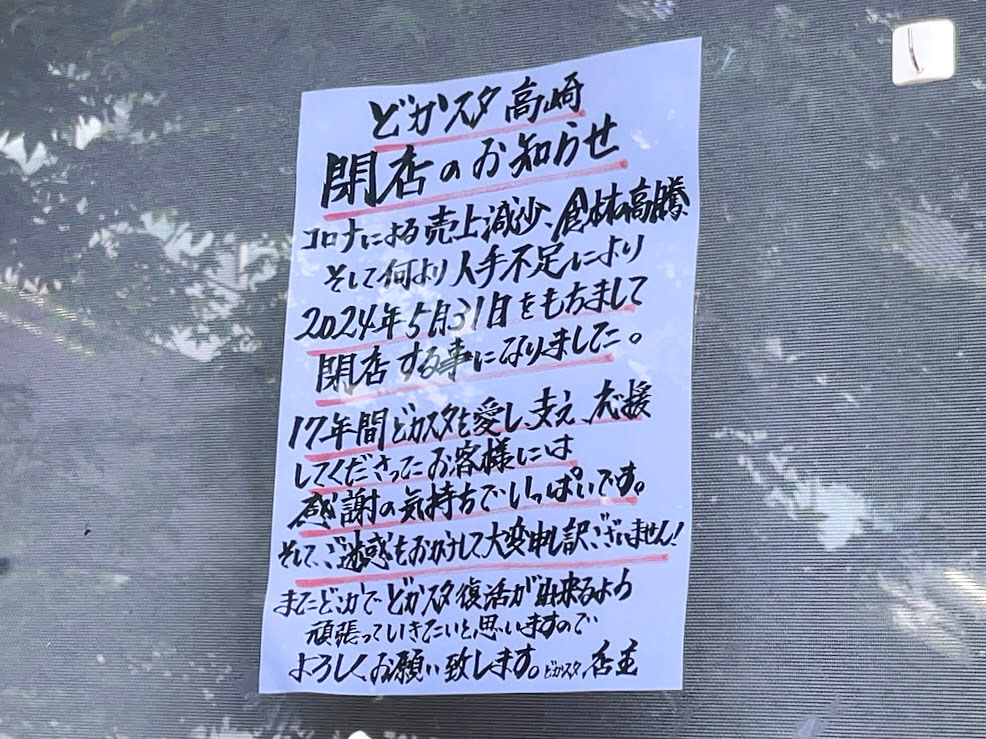 どカスタ高崎
閉店のお知らせ
コロナによる売上減少、食材高騰
そして何より人手不足により
2024年5月31日をもちまして
閉店する事になりました。
17年間どカスタを愛し、支え、応援
してくださったお客様には
感謝の気持ちでいっぱいです。
そして、ご迷惑をおかけして大変申し訳ございません!
またどこかでどカスタ復活が出来るよう
頑張っていきたいと思いますので
よろしくお願い致します。どカスタ 店主